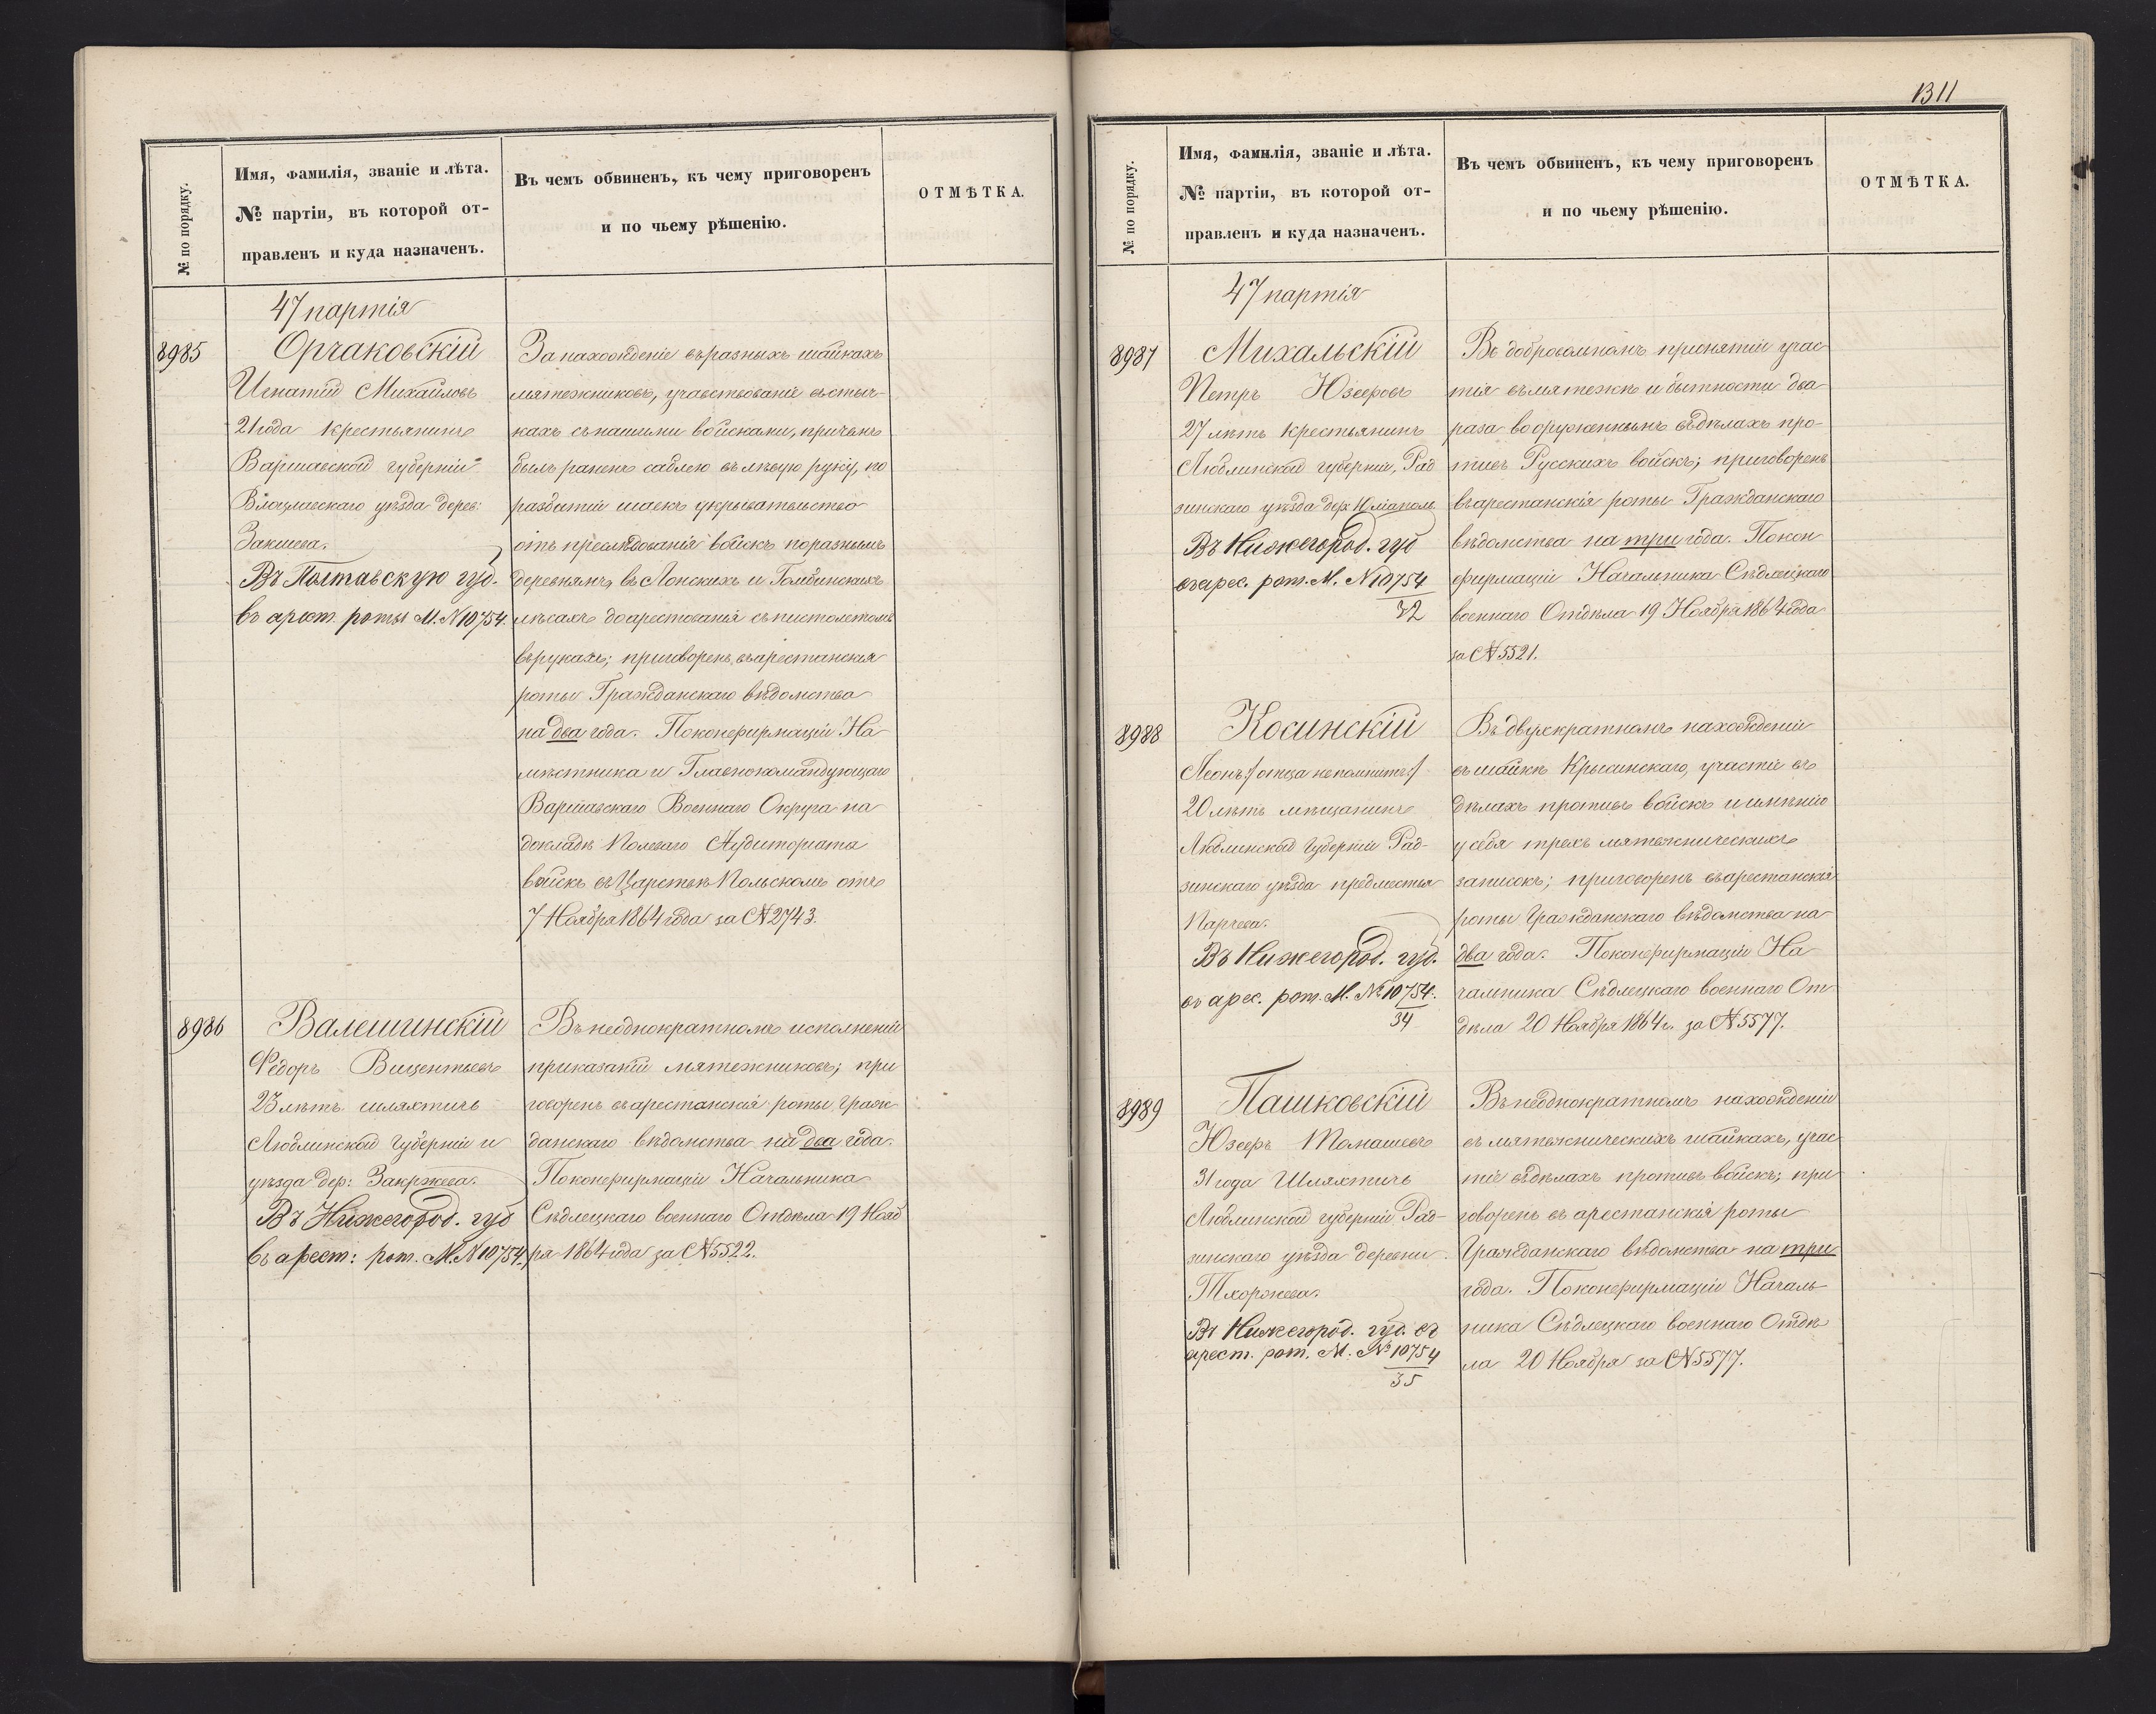 1311
№ по порядку.
Имя, фамилія, званіе и лѣта.
№ партіи, въ которой от-
правленъ и куда назначенъ.
Въ чемъ обвиненъ, къ чему приговоренъ
и по чьему рѣшенію.
ОТМѢТКА.
47 партія
8985
Орчаковскій
Игнатій Михайловъ
21 года крестьянинъ
Варшавской губерніи
Влоцлавскаго уѣзда дерев:
Закшева.
Въ Полтавскую губ.
въ арест. роты М. № 10754.
За нахожденіе въ разныхъ шайкахъ
мятежниковъ, участвованіе въ стыч-
кахъ съ нашими войсками, причемъ
былъ раненъ саблею въ лѣвую руку, по
разбитіи шаекъ укрывательство
отъ преслѣдованія войскъ по разнымъ
деревнямъ, въ Лонскихъ и Гомбинскихъ
лѣсахъ до арестованія съ пистолетомъ
въ рукахъ; приговоренъ въ арестанскія
роты Гражданскаго вѣдомства
на два года. По конфирмаціи На-
мѣстника и Главнокомандующаго
Варшавскаго Военнаго Округа на
докладѣ Полеваго Аудиторіата
войскъ въ Царствѣ Польскомъ отъ
7 Ноября 1864 года за № 2743.
8986
Валешинскій
Федоръ Вицентьевъ
23 лѣтъ шляхтичъ
Люблинской Губерніи и
уѣзда дер: Закржева.
Въ Нижегород. губ
въ арест: рот. М. № 10754.
Въ неоднократномъ исполненіи
приказаній мятежниковъ; при
говоренъ въ арестанскія роты Граж
данскаго вѣдомства на два года.
По конфирмаціи Начальника
Сѣдлецкаго военнаго Отдѣла 19 Нояб
ря 1864 года за № 5522.
№ по порядку.
Имя, фамилія, званіе и лѣта.
№ партіи, въ которой от-
правленъ и куда назначенъ.
Въ чемъ обвиненъ, къ чему приговоренъ
и по чьему рѣшенію.
ОТМѢТКА.
47 партія
8987
Михальскій
Петръ Юзефовъ
27 лѣтъ крестьянинъ
Люблинской губерніи, Рад
зинскаго уѣзда дер:
Въ Нижегород. губ
въ арес. рот. М. № 10754
32
Въ добровольномъ принятіи учас
тія въ мятежѣ и бытности два
раза вооруженнымъ въ дѣлахъ про-
тивъ Русскихъ войскъ; приговоренъ
въ арестанскія роты Гражданскаго
вѣдомства на три года. По кон
фирмаціи Начальника Сѣдлецкаго
военнаго Отдѣла 19 Ноября 1864 года
за № 5521.
8988
Косинскій
Леонъ /отца не помнитъ/
20 лѣтъ мѣщанинъ
Люблинской Губерніи Рад-
зинскаго уѣзда предмѣстья
Парчева.
Въ Нижегород. губ.
въ арес. рот. М. № 10754.
34
Въ двухкратномъ нахожденіи
въ шайкѣ Крысинскаго, участіе въ
дѣлахъ противъ войскъ и имѣнію
у себя трехъ мятежническихъ
записокъ; приговоренъ въ арестанскія
роты Гражданскаго вѣдомства на
два года. По конфирмаціи На
чальника Сѣдлецкаго военнаго От
дѣла 20 Ноября 1864 г. за № 5577.
8989
Пашковскій
Юзефъ Томашевъ
31 года Шляхтичъ
Люблинской губерніи Рад-
зинскаго уѣзда деревни
Тхоржева.
Въ Нижегород. губ. въ
арест. рот. М. № 10754
35
Въ неоднократномъ нахожденіи
въ мятежническихъ шайкахъ, учас
тіе въ дѣлахъ противъ войскъ; при
говоренъ въ арестанскія роты
Гражданскаго вѣдомства на три
года. По конфирмаціи Началь
ника Сѣдлецкаго военнаго Отдѣ
ла 20 Ноября за № 5577.